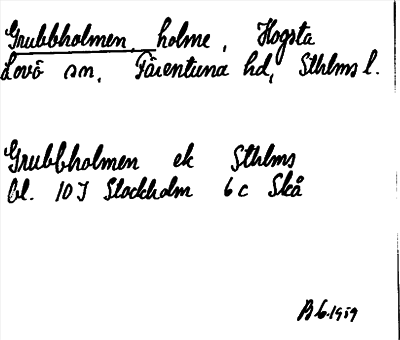 Grubbholmen, holme, Hogsta
Lovö sn, Färentuna hd, Sthlms l.
Grubbholmen ek Sthlms
bl. 10 I Stockholm 6 c Skå